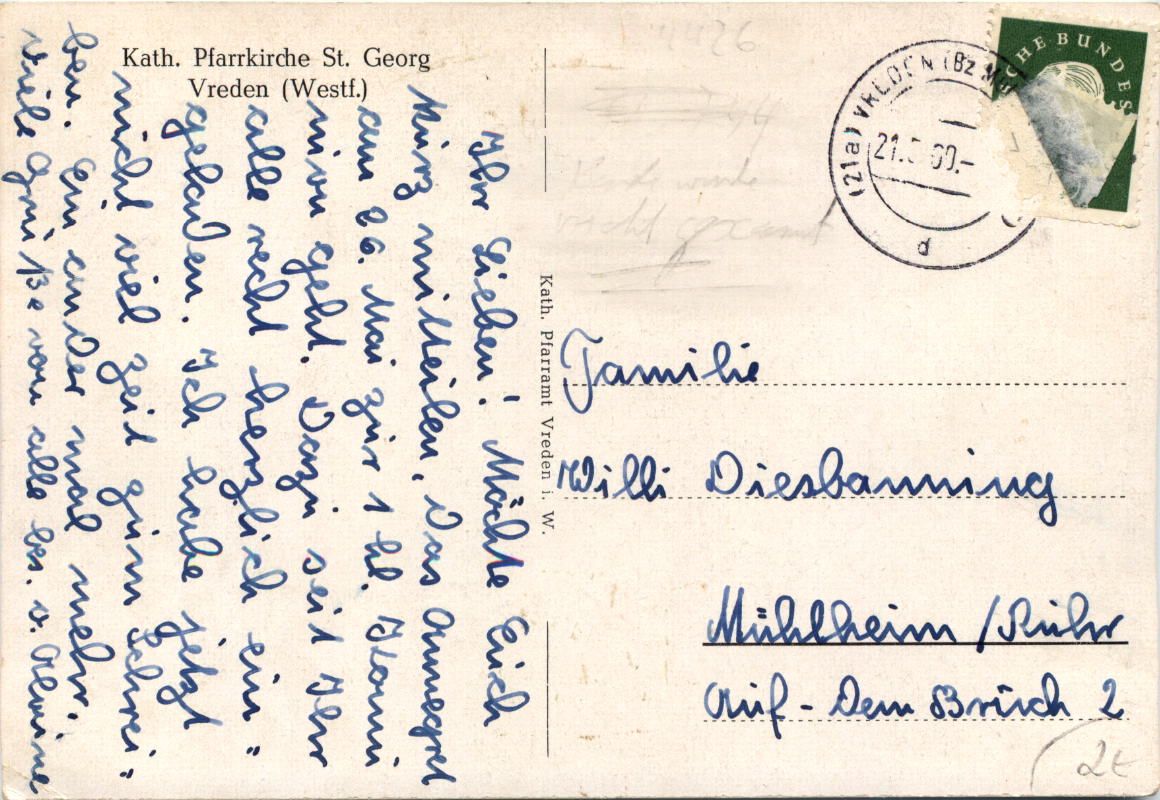 Kath. Pfarrkirche St. Georg
Vreden (Westf.)
Ihr Lieben! Möchte Euch
kürz mitteilen, das Annegret
am 26. Mai zür 1 hl. Komm
niun geht. Dazu seit Ihr
alle recht herzlich ein"
geladen. Ich habe jetzt
nicht viel zeit zum Schrei"
ben. Ein ander mal mehr.
Viele Grüße von alle bes. v. Alwine
Kath. Pfarramt Vreden i. W.
4426
CHE BUNDES
(21a) VREDEN (Bz
21.5.60.-
d
Familie
Willi Diesbanning
Mühlheim/Ruhr
Auf-Dem Brüch 2
2E